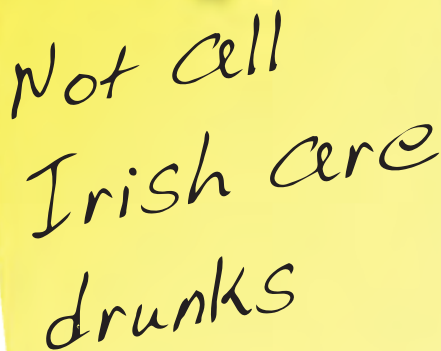 Not all
Irish are
drunks